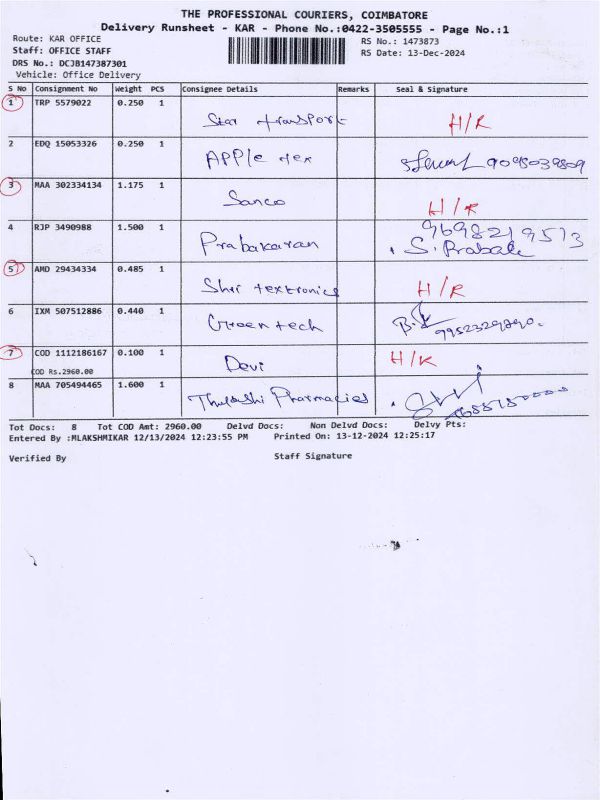 THE PROFESSIONAL COURIERS, COIMBATORE
Delivery Runsheet - KAR - Phone No.:0422-3505555 - Page No.:1
Route: KAR OFFICE
RS No.: 1473873
Staff: OFFICE STAFF
RS Date: 13-Dec-2024
DRS No.: DCJB147387301
Vehicle: Office Delivery
S No Consignment No Weight PCS Consignee Details Remarks Seal & Signature
1 TRP 5579022 0.250 1 Star transport H/R
2 EDQ 15053326 0.250 1 APPle tex 9095039809
3 MAA 302334134 1.175 1 Sanco H/R
4 RJP 3490988 1.500 1 Prabakaran 9698219513
S. Prabak
5 AMD 29434334 0.485 1 Shri textronics H/R
6 IXM 507512886 0.440 1 Green tech
7 COD 1112186167 0.100 1 Devi H/R
COD Rs.2960.00
8 MAA 705494465 1.600 1 Thulashi Pharmacies
Tot Docs: 8 Tot COD Amt: 2960.00 Delvd Docs: Non Delvd Docs: Delvy Pts:
Entered By :MLAKSHMIKAR 12/13/2024 12:23:55 PM Printed On: 13-12-2024 12:25:17
Verified By Staff Signature